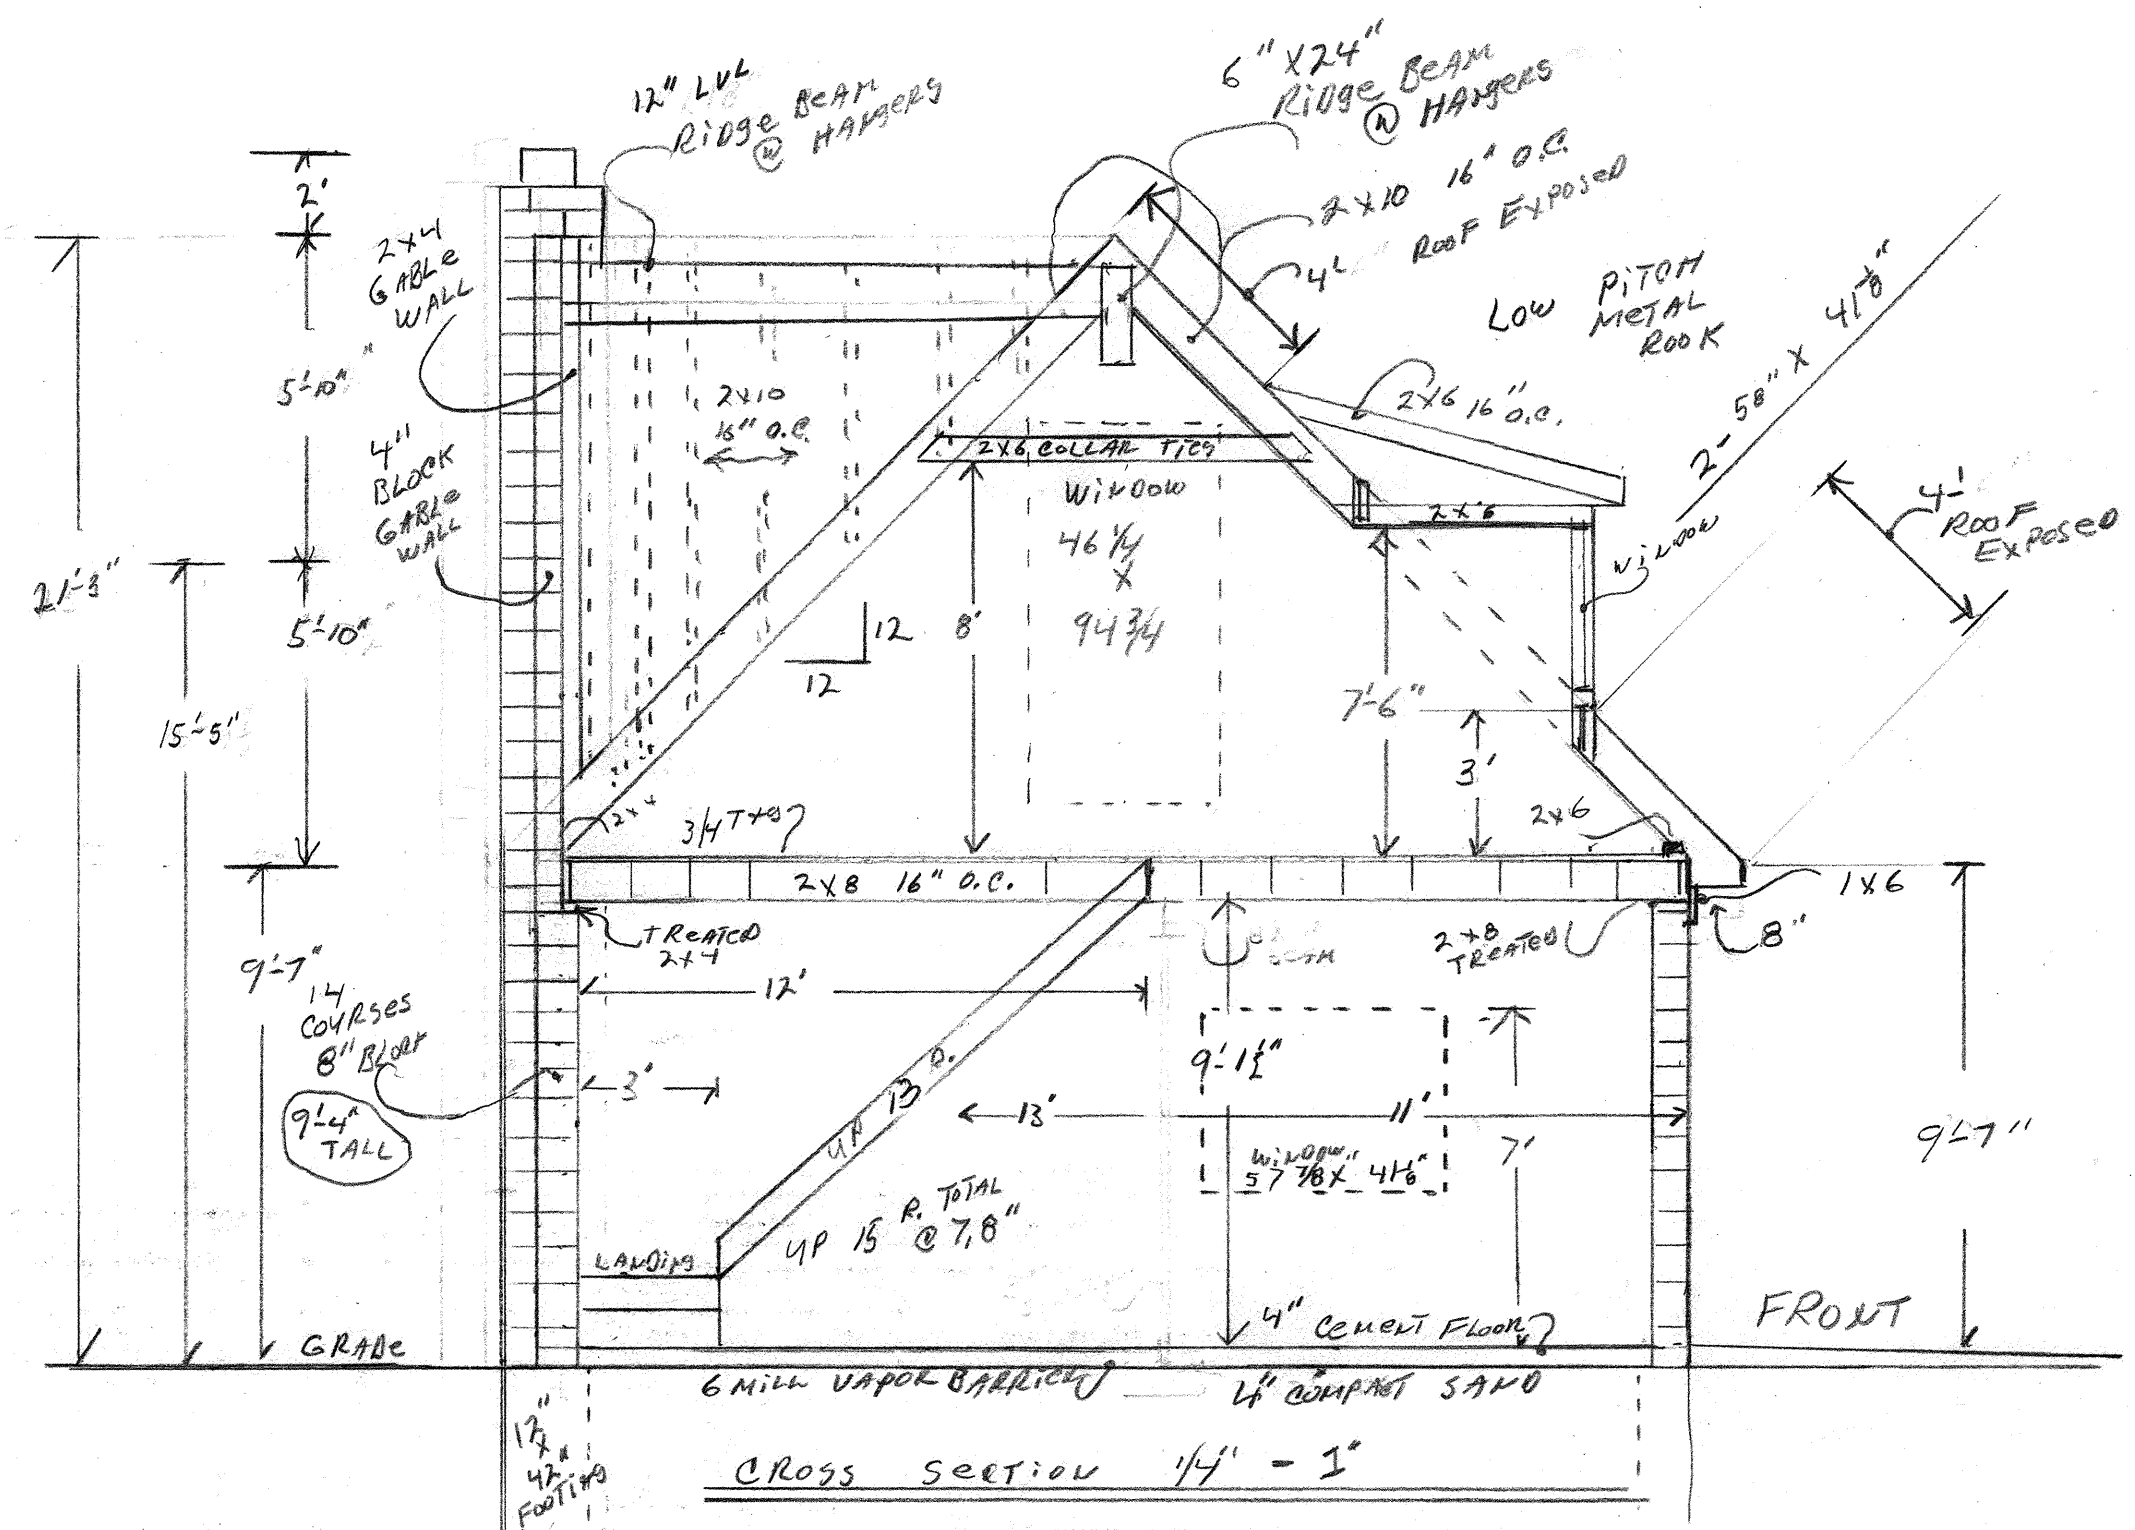 12" LVL
RiDge BeAM
@ HANgeRS
6" X24"
RiDge BeAM
@ HANgeRS
2X10 16" O.C.
4' ROOF EXPOSeD
LOW PiTCH
MeTAL
ROOK
2- 58" X 41 1/8"
2X6 16" O.C.
4'
ROOF
EXPOSeD
WiNDOW
2'
2X4
GABLe
WALL
5'-10"
4"
BLOCK
GABLe
WALL
2X10
16" O.C.
2X6 COLLAR TieS
WiNDOW
46 1/4
X
94 3/4
2X6
21'-3"
15'-5"
5'-10"
12
12
8'
7'-6"
3'
2X4
3/4 T+g
2X6
2X8 16" O.C.
1X6
8"
TReATeD
2X4
2X8
TReATeD
9'-7"
14
COURSeS
8" BLOCK
9'-4"
TALL
12'
3'
UP 13 R.
9'-1 1/2"
13'
11'
7'
WiNDOW
57 7/8 X 41 1/8"
9'-7"
UP 15 R. TOTAL
@ 7,8"
LANDiNg
4" CeMeNT FLOOR
FRONT
GRADe
6 MiLL VAPOR BARRieR
4" COMPACT SAND
12"
X
42"
FOOTiNg
CROSS SeCTiON 1/4" - 1"